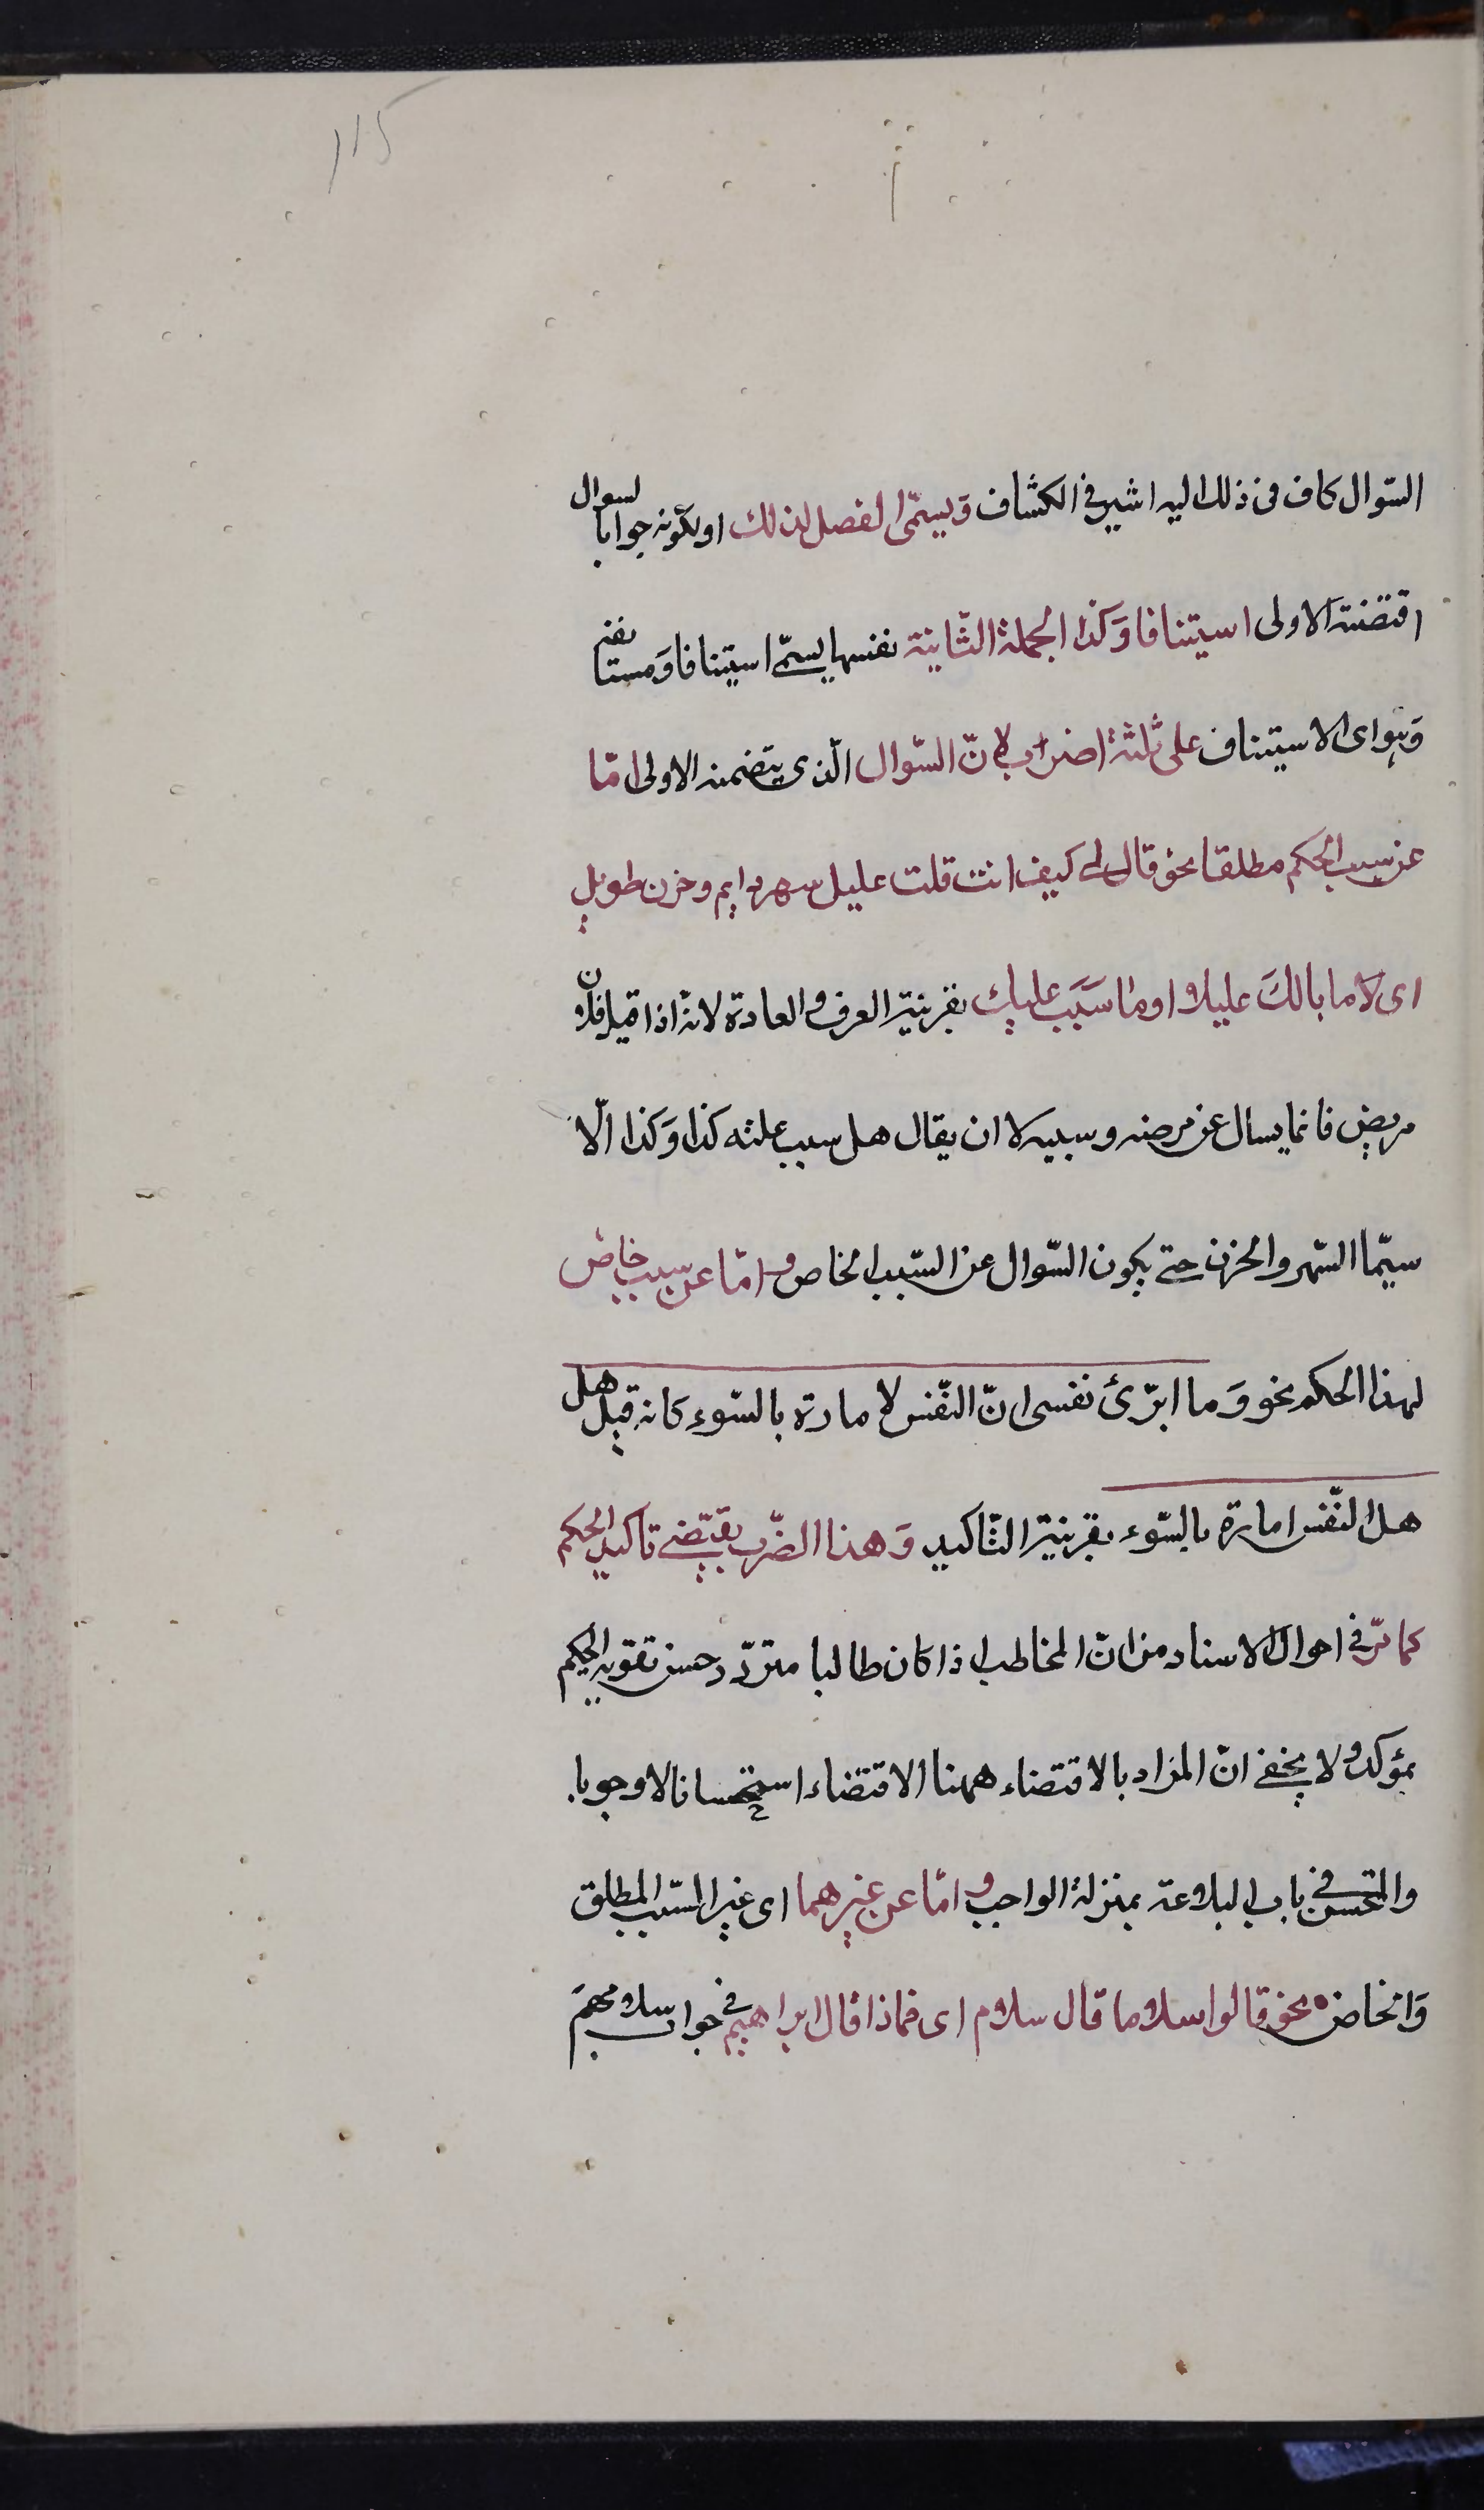 115
السّوال كاف فى ذلك اليه اشير فى الكشّاف وَيسمّى الفصل لذلك او لكونه جوابا لسوال
اقتضته الاولى استينافا وَكذا الجملة الثّانية نفسها يسمّى استينافا وَمستانفة
وَهو اى الاستيناف على ثلثة اضراب لانّ السّوال الّذى يتضمنه الاولى امّا
عن سبب الحكم مطلقا نحو قال لى كيف انت قلت عليل سهر دايم وحزن طويل
اى لا ما بالكَ عليلا او ما سَبَب علتك بقرينة العرف والعادة لانّه اذا قيل فلان
مريض فانما يسال عن مرضه وسببه لا ان يقال هل سبب علته كذا وَكذا الّا
سيّما السّهر والحزن حتى يكون السّوال عن السّبب الخاص و امّا عن سبب خاص
لهذا الحكم نحو وَما ابرّئ نفسى انّ النّفس لامارة بالسّوء كانه قيل هل
هل النّفس امارة بالسّوء بقرينة التّاكيد وَهذا الضّرب يقتضى تاكيد الحكم
كما مرّ فى احوال الاسناد من انّ المخاطب اذا كان طالبا متردّد حسن تقوية الحكم
بمؤكد ولا يخفى انّ المراد بالاقتضاء ههنا الاقتضاء استحسانا لا وجوبا
والمتحسن فى باب البلاغة بمنزلة الواجب و امّا عن غيرهما اى غير السّبب المطلق
وَالخاص نحو قالوا سلاما قال سلام اى فماذا قال ابراهيم فى جواب سلامهم